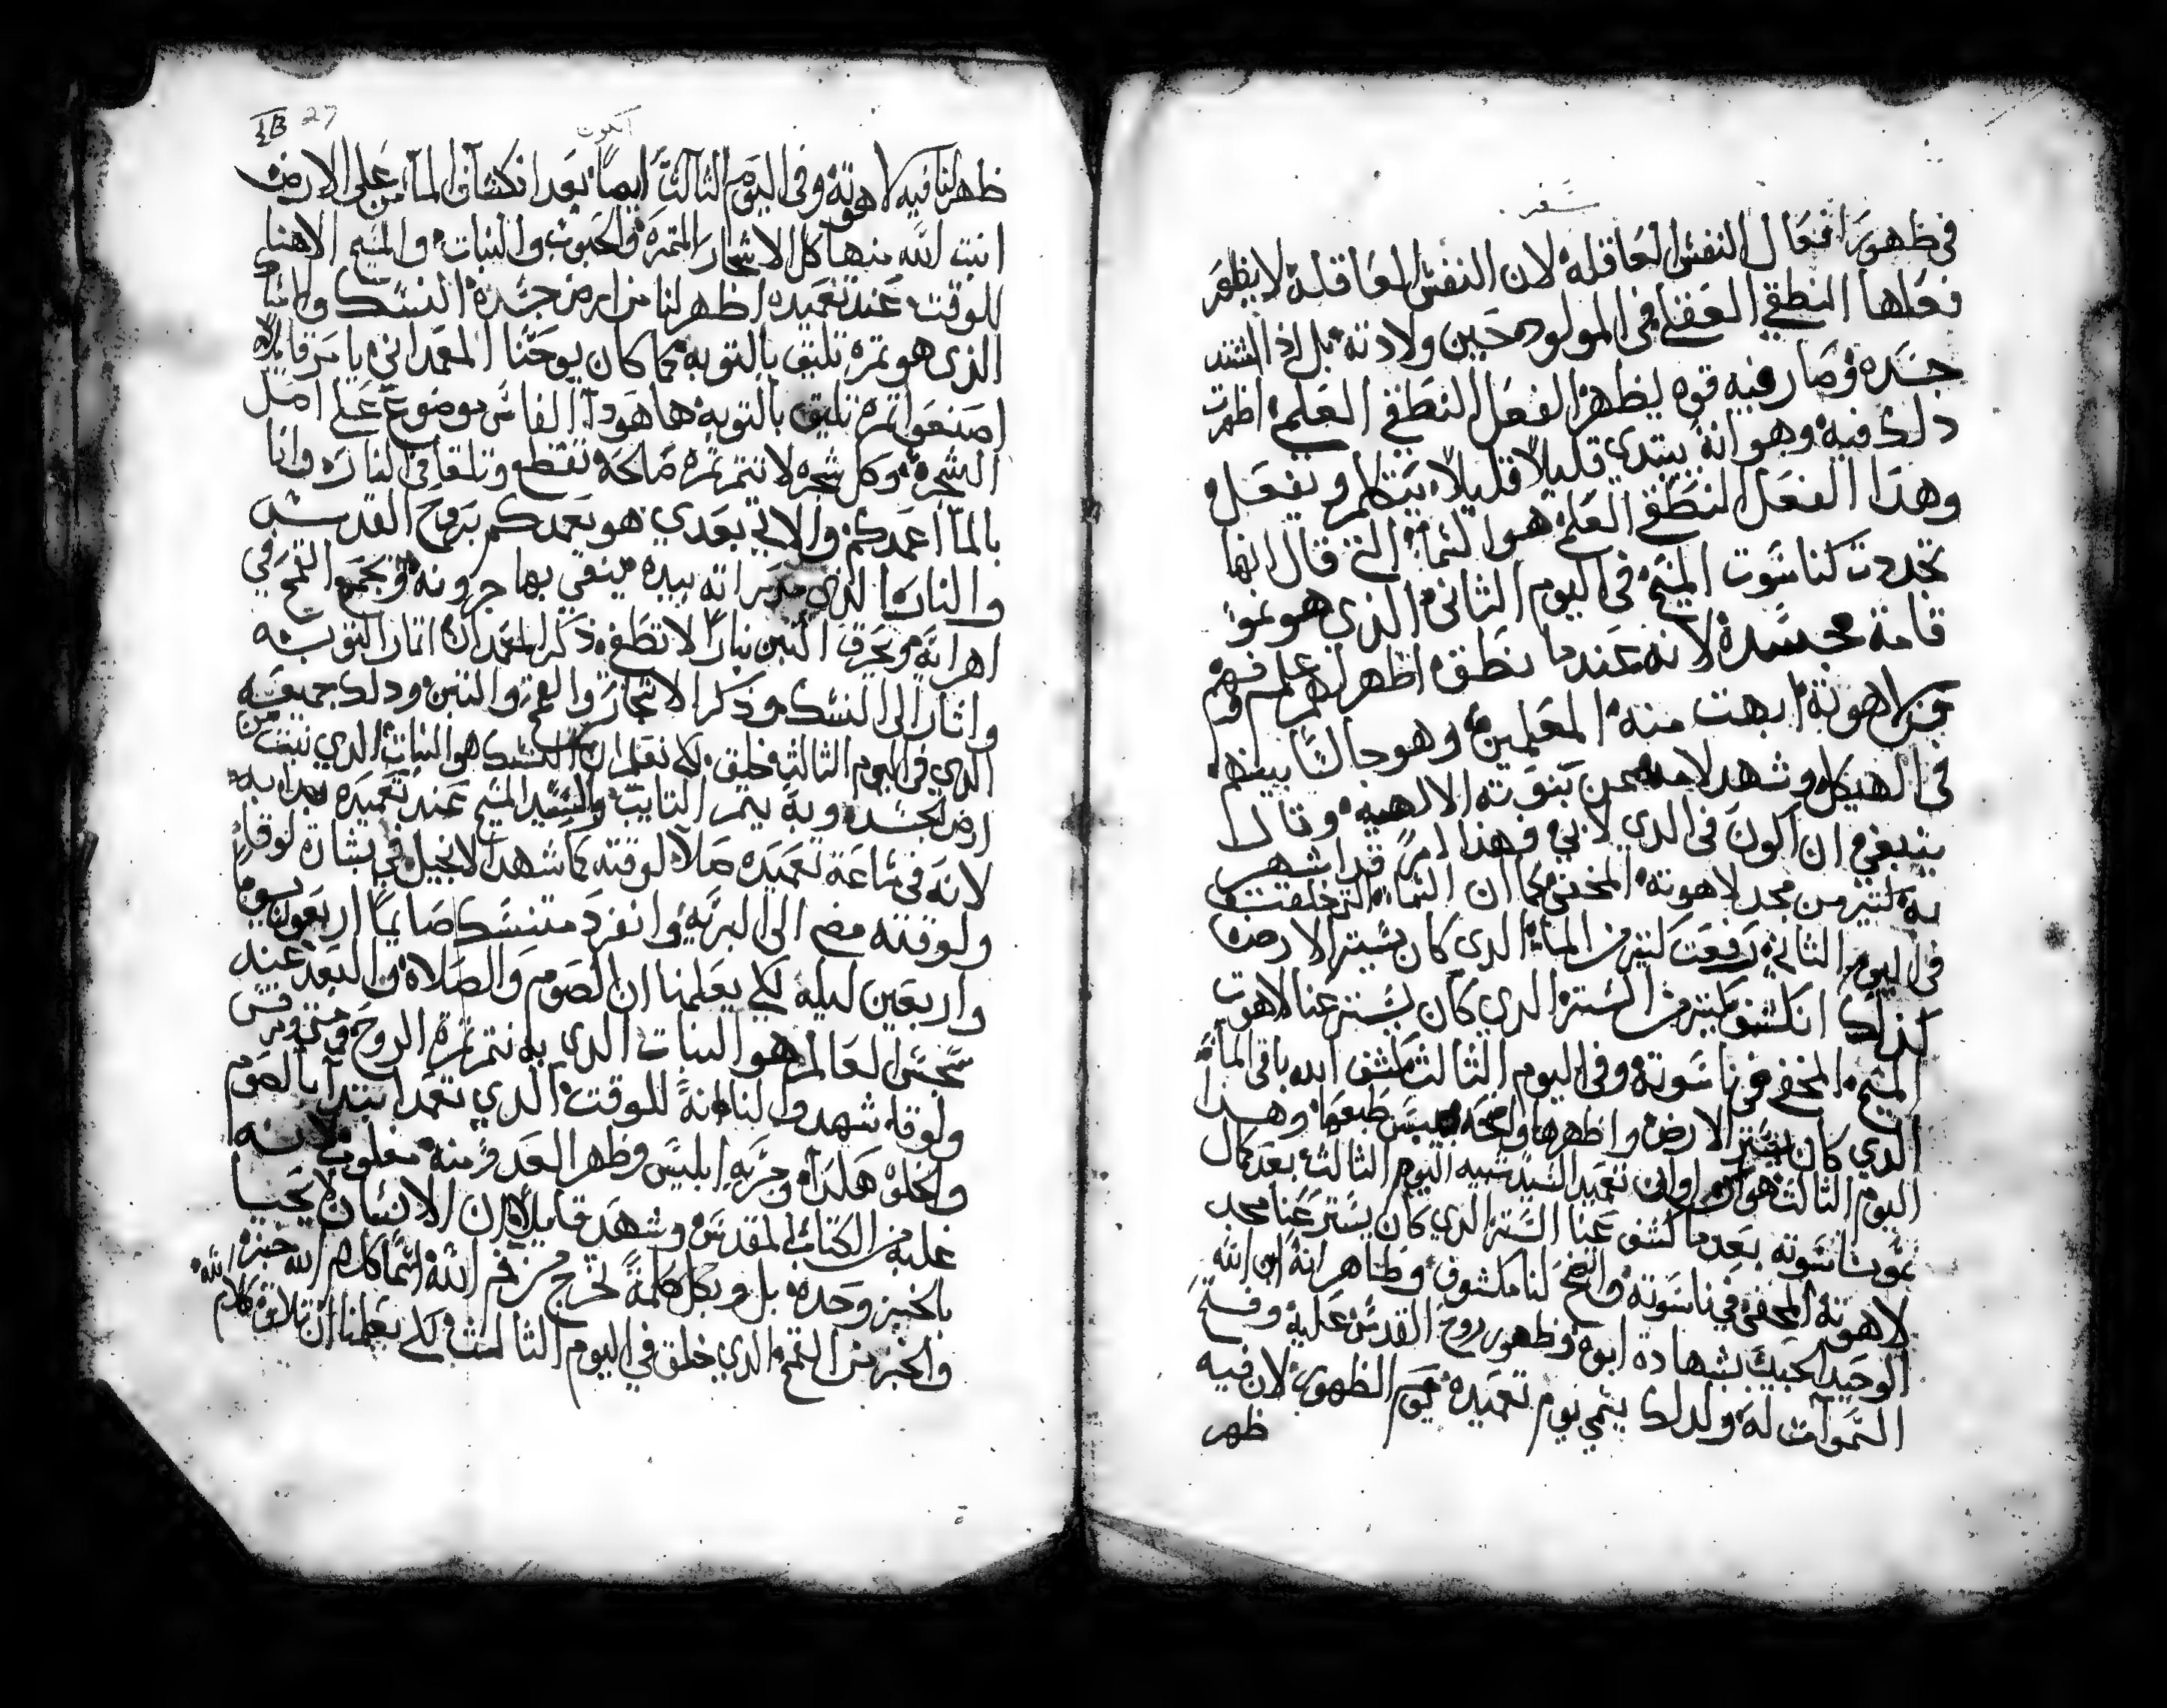 سفر
في ظهور افعال النفس العاقله لان النفس العاقله لا يظهر
فعلها النطقي العقلي في المولود حين ولادته بل اذا اشتد
جسده وصار فيه قوه يظهر الفعل النطقي العلمي اظهرت
دلك فيه وهو انه يبتدي قليلاً قليلاً يتكلم ويفعل
وهذا الفعل النطقي العلمي هو السما التي قال انها
تجددت كناسوت المسيح في اليوم الثاني الذي هو نمو
قامة جسده لانه عندما نطق اظهر لهم علم وفهم
من لاهوته ابهت منه المعلمين وهو جالسا بينهم
في الهيكل وشهد لامه عن بنوته الالهيه وقال
ينبغي ان اكون في الدي لابي فهذا امرٍ قد اشهر
به كتير من مجد لاهوته المخفي كما ان السماء التي خلقت
في اليوم الثاني رفعت كتير من الماء الدي كان يستر الارض
كذلك انكشف كتير من الستر الدي كان يستر عنا لاهوت
المسيح المخفي في ناسوته وفي اليوم الثالث كشف الله باقي الماء
الدي كان يستر الارض واظهرها واضحه طبعها وهدا
اليوم الثالث هو اوان تعميد السيد شبيه اليوم الثالث بعد كمال
نمو ناسوته بعد ما كشف عنا الستر الدي كان يستر عنا مجد
لاهوته المخفي في ناسوته واتضح لنا مكشوف وظاهر انه ابن الله
الوحيد الحبيب بشهادة ابوه وظهور روح القدس عليه وفتح
السموات له ولدلك يسمي يوم تعميده يوم الظهور لان فيه
ظهر
27
اكون
ظهر لنا فيه لاهوته وفي اليوم الثالث ايضاً بعد انكشاف الماء من على الارض
انبت الله منها كل الاشجار المثمره والحبوب والنبات والمسيح الاهنا
للوقت عند تعميده اظهر لنا من ارض جسده النسك
الذي هو ثمره تليق بالتوبه كما كان يوحنا المعمداني يامر قايلاً
اصنعوا ثمره تليق بالتوبه ها هودا الفاس موضوع على اصل
الشجره وكل شجره لا تثمر ثمره صالحه تقطع وتلقا في النار وانا
بالماء اعمدكم والاتي بعدي هو يعمدكم بروح القدس
والنار الذي بيده ينقي بها جرونه ويجمع القمح في
اهرائه ويحرق التبن بنار لا تطفي ذكر المعمدان اتمار التوبه
واشار الى النسك وذكر الاشجار والقمح والتبن ودلك جميعه
الدي في اليوم الثالث خلق لكي نعلم ان النسك هو النبات الدي نبت من
ارض الجسد وبه يثمر التايب والسيد المسيح عند تعميده بدا به
لانه في ساعة تعميده صلا لوقته كما شهد الانجيل في بشارة لوقا
ولوقته مضى الى البريه وانفرد متنسك صايماً اربعون يوماً
واربعين ليله لكي يعلمنا ان الصوم والصلاه والبعد عن
سجس العالم هو النبات الدي به نثمر ثمرة الروح
ولوقا شهد وقال لنا انه للوقت الدي تعمد ابتدا بالصوم
والخلوه هكدا وجربه ابليس وظهر العدو منه مغلوب لانه
غلبه من الكتاب المقدس وشهد قايلاً ان الانسان لا يحيا
بالخبز وحده بل وبكل كلمةٍ تخرج من فم الله كلام الله خبز
والخبز من القمح الدي خلق في اليوم الثالث لكي يعلمنا ان تلاوة كلام الله